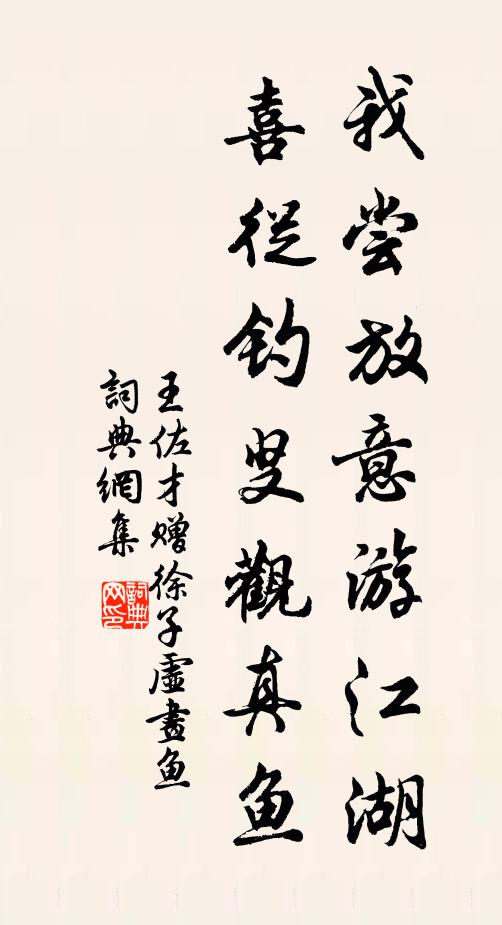 我尝放意游江湖
喜從钓叟觀真鱼
王佐才赠徐子虛畫鱼
詞典網集
詞典网印